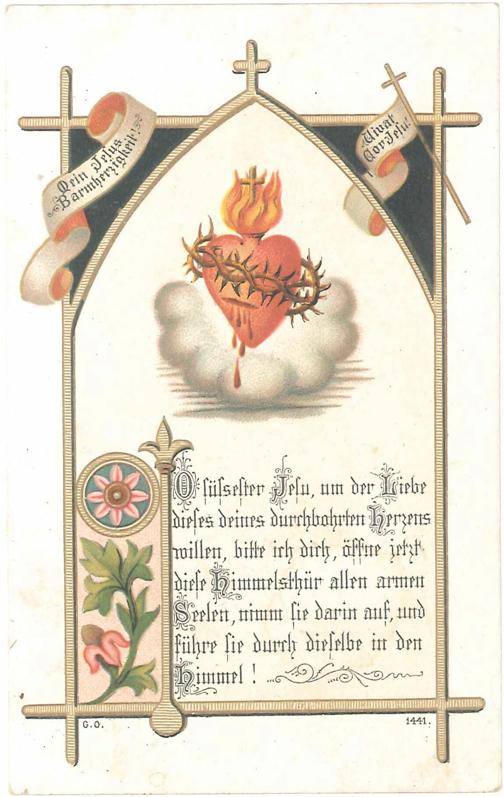 Mein Jesus
Barmherzigkeit!
Vivat
Cor Jesu!
O süssester Jesu, um der Liebe
dieses deines durchbohrten Herzens
willen, bitte ich dich, öffne jetzt
diese Himmelsthür allen armen
Seelen, nimm sie darin auf, und
führe sie durch dieselbe in den
Himmel!
G.O.
1441.